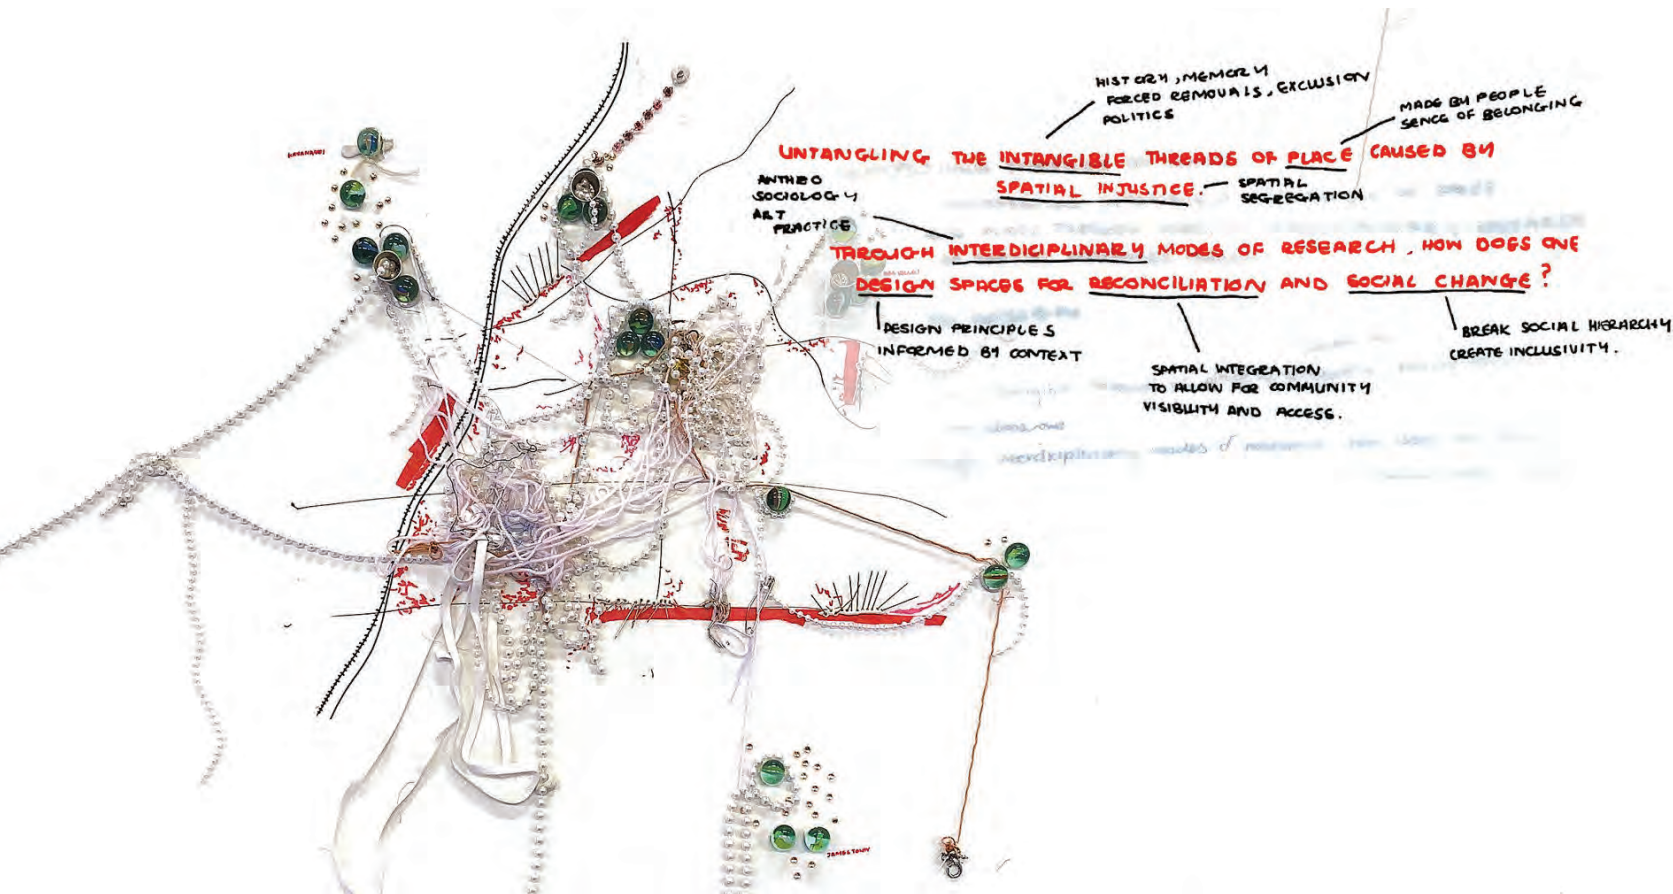 HISTORY, MEMORY
FORCED REMOVALS, EXCLUSION
POLITICS
MADE BY PEOPLE
SENCE OF BELONGING
UNTANGLING THE INTANGIBLE THREADS OF PLACE CAUSED BY
SPATIAL INJUSTICE.
SPATIAL
SEGREGATION
ANTHRO
SOCIOLOGY
ART
PRACTICE
THROUGH INTERDICIPLINARY MODES OF RESEARCH, HOW DOES ONE
DESIGN SPACES FOR RECONCILIATION AND SOCIAL CHANGE?
DESIGN PRINCIPLES
INFORMED BY CONTEXT
SPATIAL INTEGRATION
TO ALLOW FOR COMMUNITY
VISIBILITY AND ACCESS.
BREAK SOCIAL HIERARCHY
CREATE INCLUSIVITY.
JAMESTOWN